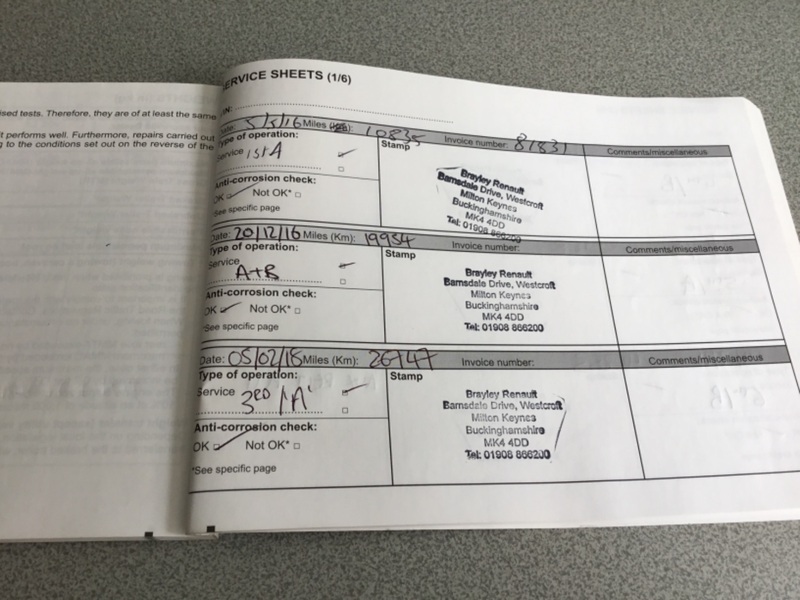 ised tests. Therefore, they are of at least the same
t performs well. Furthermore, repairs carried out
g to the conditions set out on the reverse of the
ERVICE SHEETS (1/6)
IN:
Date: 5/5/16 Miles (Km): 10835 Invoice number: 81831 Comments/miscellaneous
Type of operation: Stamp
Service 1st A
Anti-corrosion check:
OK Not OK*
*See specific page
Brayley Renault
Barnsdale Drive, Westcroft
Milton Keynes
Buckinghamshire
MK4 4DD
Tel: 01908 866200
Date: 20/12/16 Miles (Km): 19954 Invoice number: Comments/miscellaneous
Type of operation: Stamp
Service
A+B
Anti-corrosion check:
OK Not OK*
*See specific page
Brayley Renault
Barnsdale Drive, Westcroft
Milton Keynes
Buckinghamshire
MK4 4DD
Tel: 01908 866200
Date: 05/02/18 Miles (Km): 26747 Invoice number: Comments/miscellaneous
Type of operation: Stamp
Service
3RD 'A'
Anti-corrosion check:
OK Not OK*
*See specific page
Brayley Renault
Barnsdale Drive, Westcroft
Milton Keynes
Buckinghamshire
MK4 4DD
Tel: 01908 866200